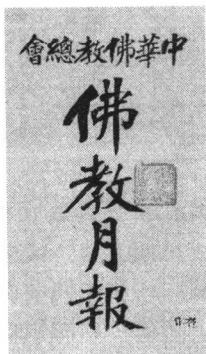 中華佛教總會
佛教月報